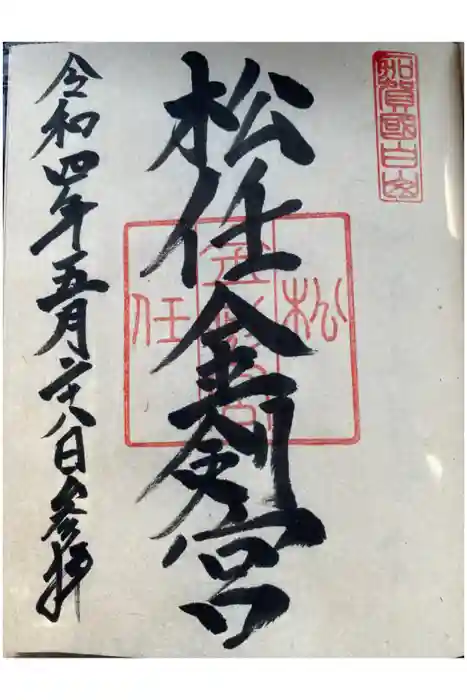 加賀國白山
松任金剣宮
松
任
令和四年五月二十八日参拝